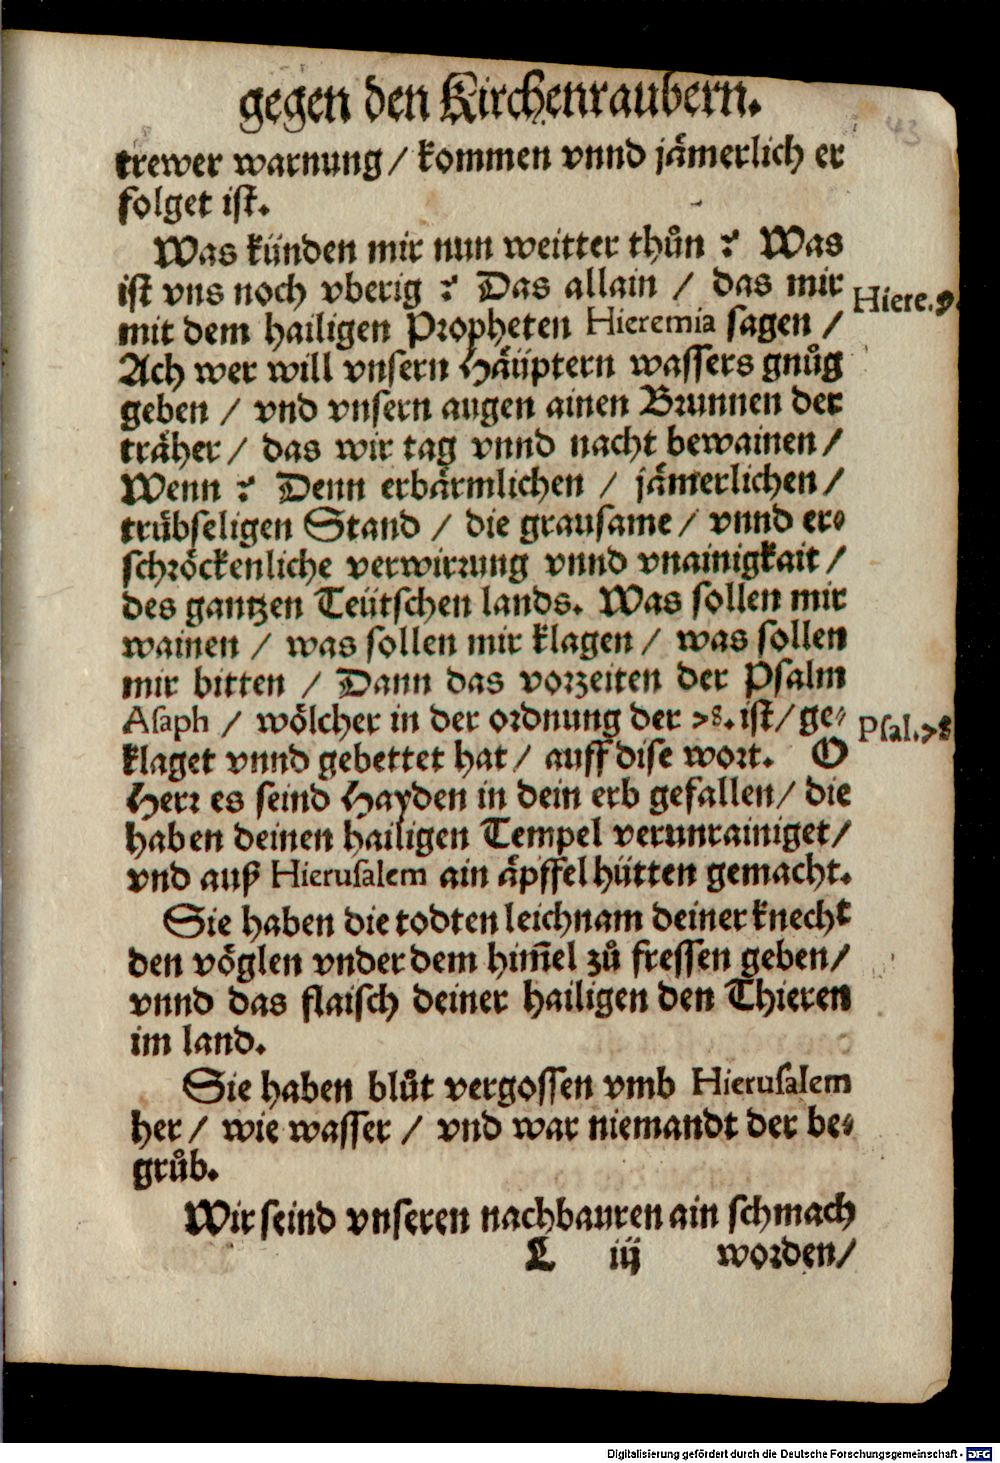 gegen den Kirchenraubern.
43
trewer warnung / kommen vnnd jämerlich er
folget ist.
Was künden mir nun weitter thůn ? Was
ist vns noch vberig ? Das allain / das mir
Hiere.9.
mit dem hailigen Propheten Hieremia sagen /
Ach wer will vnsern Häüptern wassers gnůg
geben / vnd vnsern augen ainen Brunnen der
träher / das wir tag vnnd nacht bewainen /
Wenn ? Denn erbärmlichen / jämerlichen /
trůbseligen Stand / die grausame / vnnd er-
schröckenliche verwirrung vnnd vnainigkait /
des gantzen Teütschen lands. Was sollen mir
wainen / was sollen mir klagen / was sollen
mir bitten / Dann das vorzeiten der Psalm
Asaph / wölcher in der ordnung der 78. ist / ge-
Psal.78
klaget vnnd gebettet hat / auff dise wort. O
Herr es seind Hayden in dein erb gefallen / die
haben deinen hailigen Tempel verunrainiget /
vnd auß Hierusalem ain äpffelhütten gemacht.
Sie haben die todten leichnam deiner knecht
den vöglen vnder dem him̄el zů fressen geben /
vnnd das flaisch deiner hailigen den Thieren
im land.
Sie haben blůt vergossen vmb Hierusalem
her / wie wasser / vnd war niemandt der be-
grůb.
Wir seind vnseren nachbauren ain schmach
L iij worden /
Digitalisierung gefördert durch die Deutsche Forschungsgemeinschaft - DFG